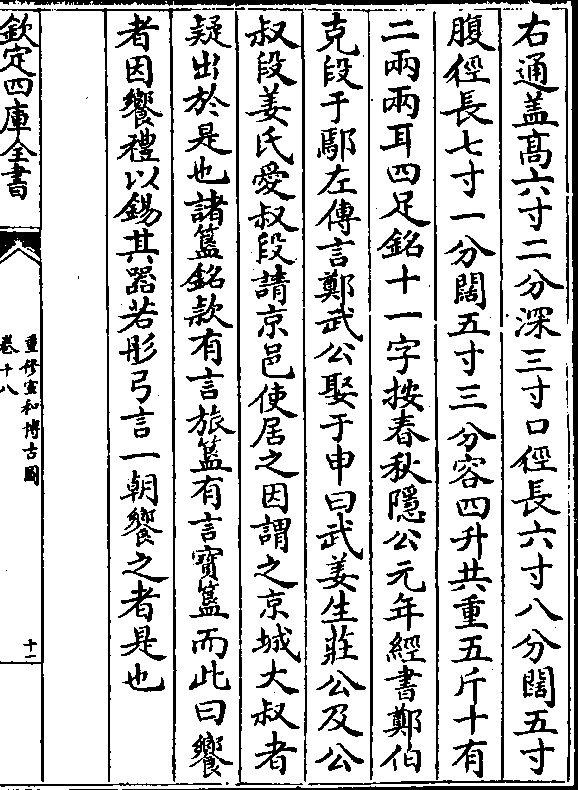 右通盖髙六寸二分深三寸口徑長六寸八分闊五寸
腹徑長七寸一分闊五寸三分容四升共重五斤十有
二兩兩耳四足銘十一字按春秋隱公元年經書鄭伯
克段于鄢左傳言鄭武公娶于申曰武姜生莊公及公
叔段姜氏愛叔段請京邑使居之因謂之京城大叔者
疑出於是也諸簠銘款有言旅簠有言寶簠而此曰饗
者因饗禮以錫其器若彤弓言一朝饗之者是也
欽定四庫全書
重修宣和博古圖
卷十八
十二